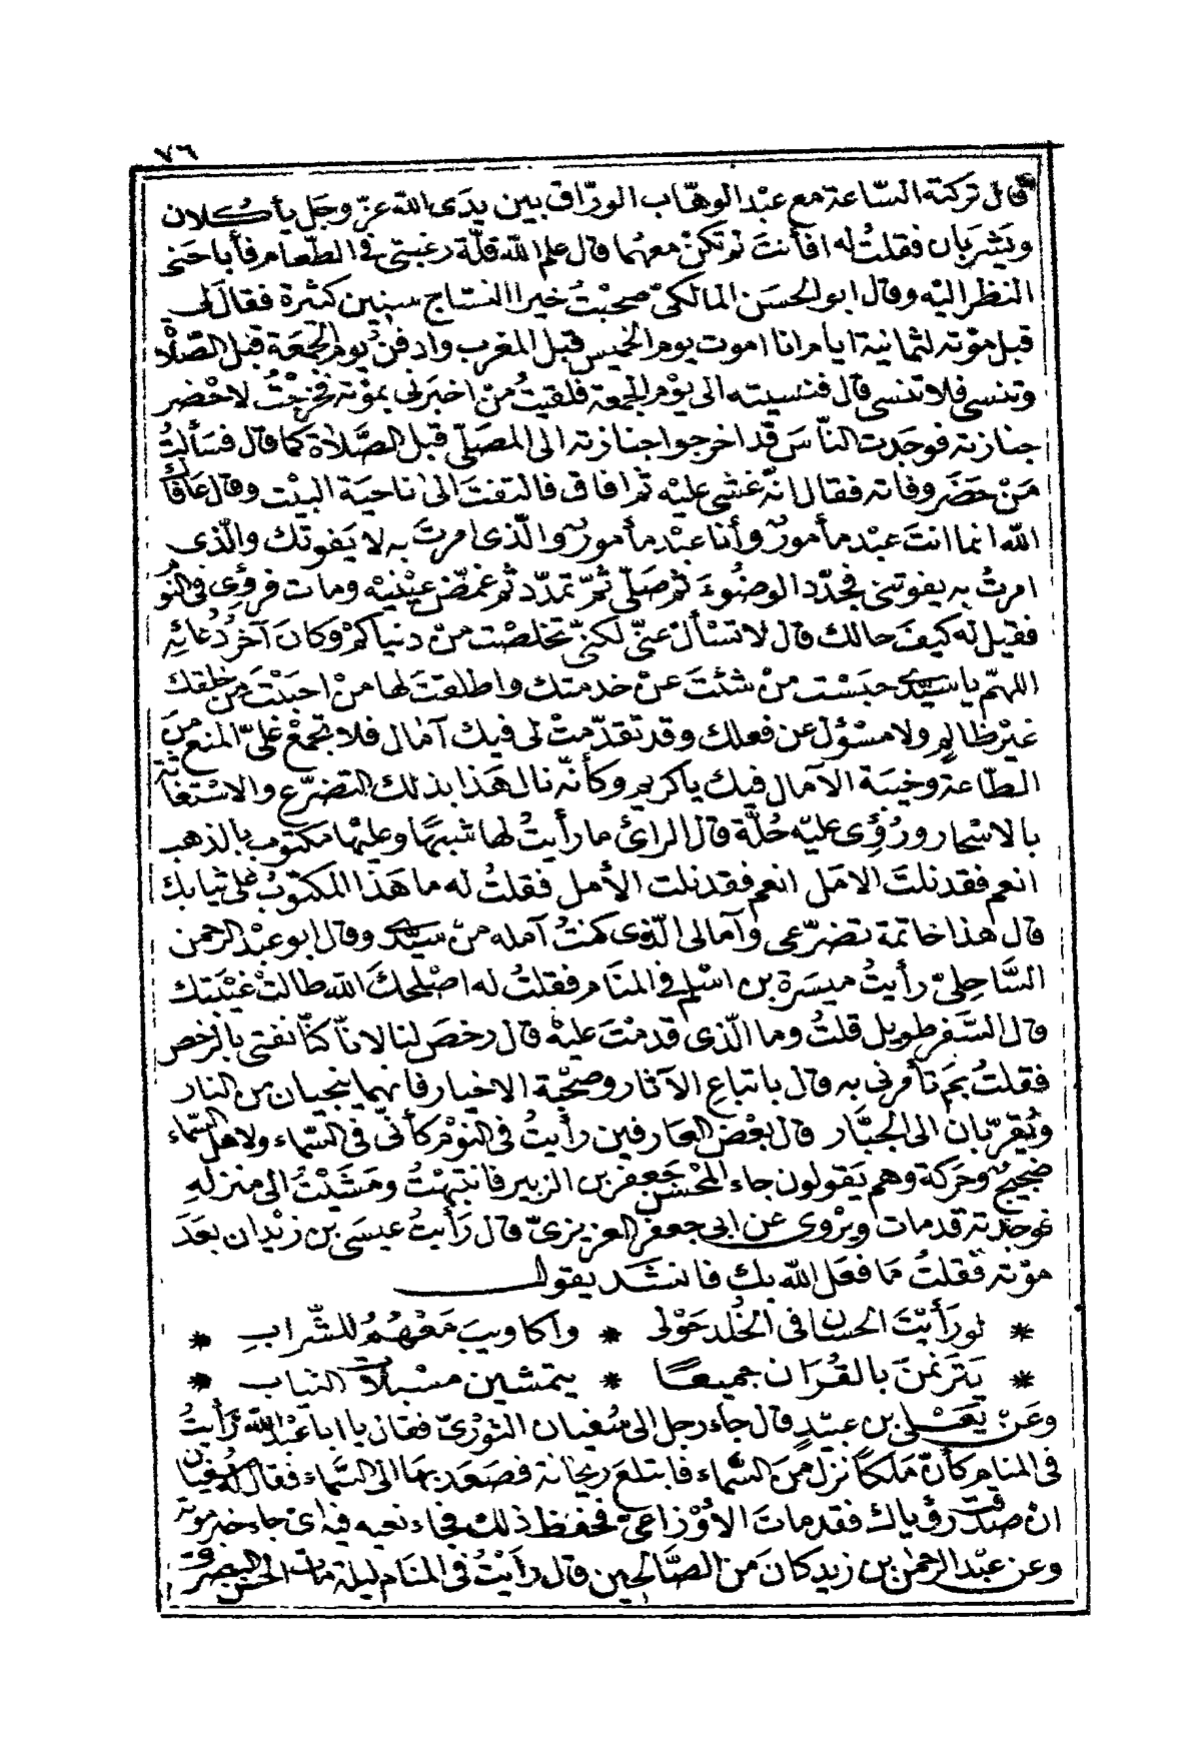 ٧٦
قال تركته الساعة مع عبْد الوهّاب الورّاق بين يدَى الله عزّ وجَل يأكُلان
ويَشربان فقلتُ له افأنتَ لم تكنْ معهُما قال علم الله قلّة رغبتى فى الطّعام فأباحَنى
النظر اليْه وقال ابو الحسَن المالكىّ صحبْتُ خيرا النسّاج سنين كثيرة فقال لى
قبل مَوْته لثمانية ايام انا اموت يوم الخميس قبل المغرب وادفنُ يوم الجمعَة قبل الصّلاة
وتنسى فلا تنسى قال فنسيته الى يوْم الجمعة فلقيتُ مَنْ اخبَرنى بموْته فخرجْتُ لاحْضر
جنازته فوجَدت النّاسَ قد اخرجوا جنازته الى المصَلّى قبل الصَّلاة كما قال فسَألتُ
مَنْ حَضَر وفاته فقال انّه غشى عليْه ثم افاق فالتفتَ الى ناحيَة البيْت وقال عافاك
الله انما انتَ عبْد مأمورٌ وأنا عبْد مأمورٌ والّذى امرتَ به لا يَفوتك والّذى
امرتُ به يفوتنى فجدّد الوضُوءَ ثم صَلّى ثمّ تمدّد ثم غمّض عيْنيْه ومات فرؤى فى النّوم
فقيل له كيفَ حالك قال لا تسْأل عنّى لكنّى تخلصْت منْ دنياكمْ وكانَ آخرُ دُعائِه
اللهمّ يا سَيّدى حبَسْت منْ شئتَ عنْ خدمتك واطلقتَ لها منْ احببْتَ من خلقك
غيْر ظالم ولا مسْؤل عن فعلك وقد تقدّمتْ لى فيك آمال فلا تجمعْ علىّ المنع منَ
الطّاعة وخيبَة الآمال فيك يا كريم وكأنّه نال هَذا بذلك التضرّع والاسْتغاثة
بالاسْحار ورُؤى عليْه حُلّة قال الرائى ما رأيتُ لها شبهًا وعليْها مكتوب بالذهب
انعم فقد نلتَ الامَل انعم فقد نلت الأمل فقلتُ له ما هَذا المكتوبُ على ثيابك
قال هذا خاتمة تضرّعى وآمالى الّذى كنتُ آمله منْ سَيّدى وقال ابو عبْد الرحمن
السَّاحلىّ رأيتُ ميسَرة بن اسْلم فى المنَام فقلتُ له اصْلحكَ الله طالتْ غيْبَتك
قال السَّفر طويل قلتُ وما الّذى قدمْتَ عليْه قال رخصَ لنا لانّا كنّا نفتى بالرّخص
فقلتُ بمَ تأمرنى به قال باتباع الآثار وصحْبَة الاخيار فانهما ينجيان من النار
ويُقرّبان الى الجبَّار قال بعْض العارفين رأيتُ فى النوْم كأنّى فى السّماء ولاهل السّماء
ضجيجٌ وحَركة وهم يَقولون جاء المحْسن جَعفر بن الزبير فانتبهْتُ ومَشَيْتُ الى منزله
فوجدته قد مات ويرْوى عن ابى جعفر العزيزىّ قال رَأيتُ عيسَى بن زيْدان بعدَ
موْته فقلتُ مَا فعَل الله بك فانشَد يقول
* لو رَأيْتَ الحسَان فى الخُلد حَوْلى * واكاويبَ مَعْهُمُ للشّرابِ *
* يَتَرنمنَ بالقُرَان جميعًا * يتمشين مسْبلات الثياب *
وعَنْ يَعْلى بن عبيْد قال جاء رجل الى سُفيان الثوْرىّ فقال يا ابا عبْد الله رَأيتُ
فى المنام كأنّ مَلكا نزل منَ السّماء فابتلعَ ريحانة فصَعَد بها الى السَّماء فقال له سُفيان
انْ صدّقت رؤياك فقد ماتَ الأوْزاعىّ فحفظ ذلك فجاء نعيه فيه اى جاء خبر موْته
وعن عبْد الرحمٰن بن زيد كانَ منَ الصَّالحين قال رأيْتُ فى المنَام ليلة مات الحسَن البصرى